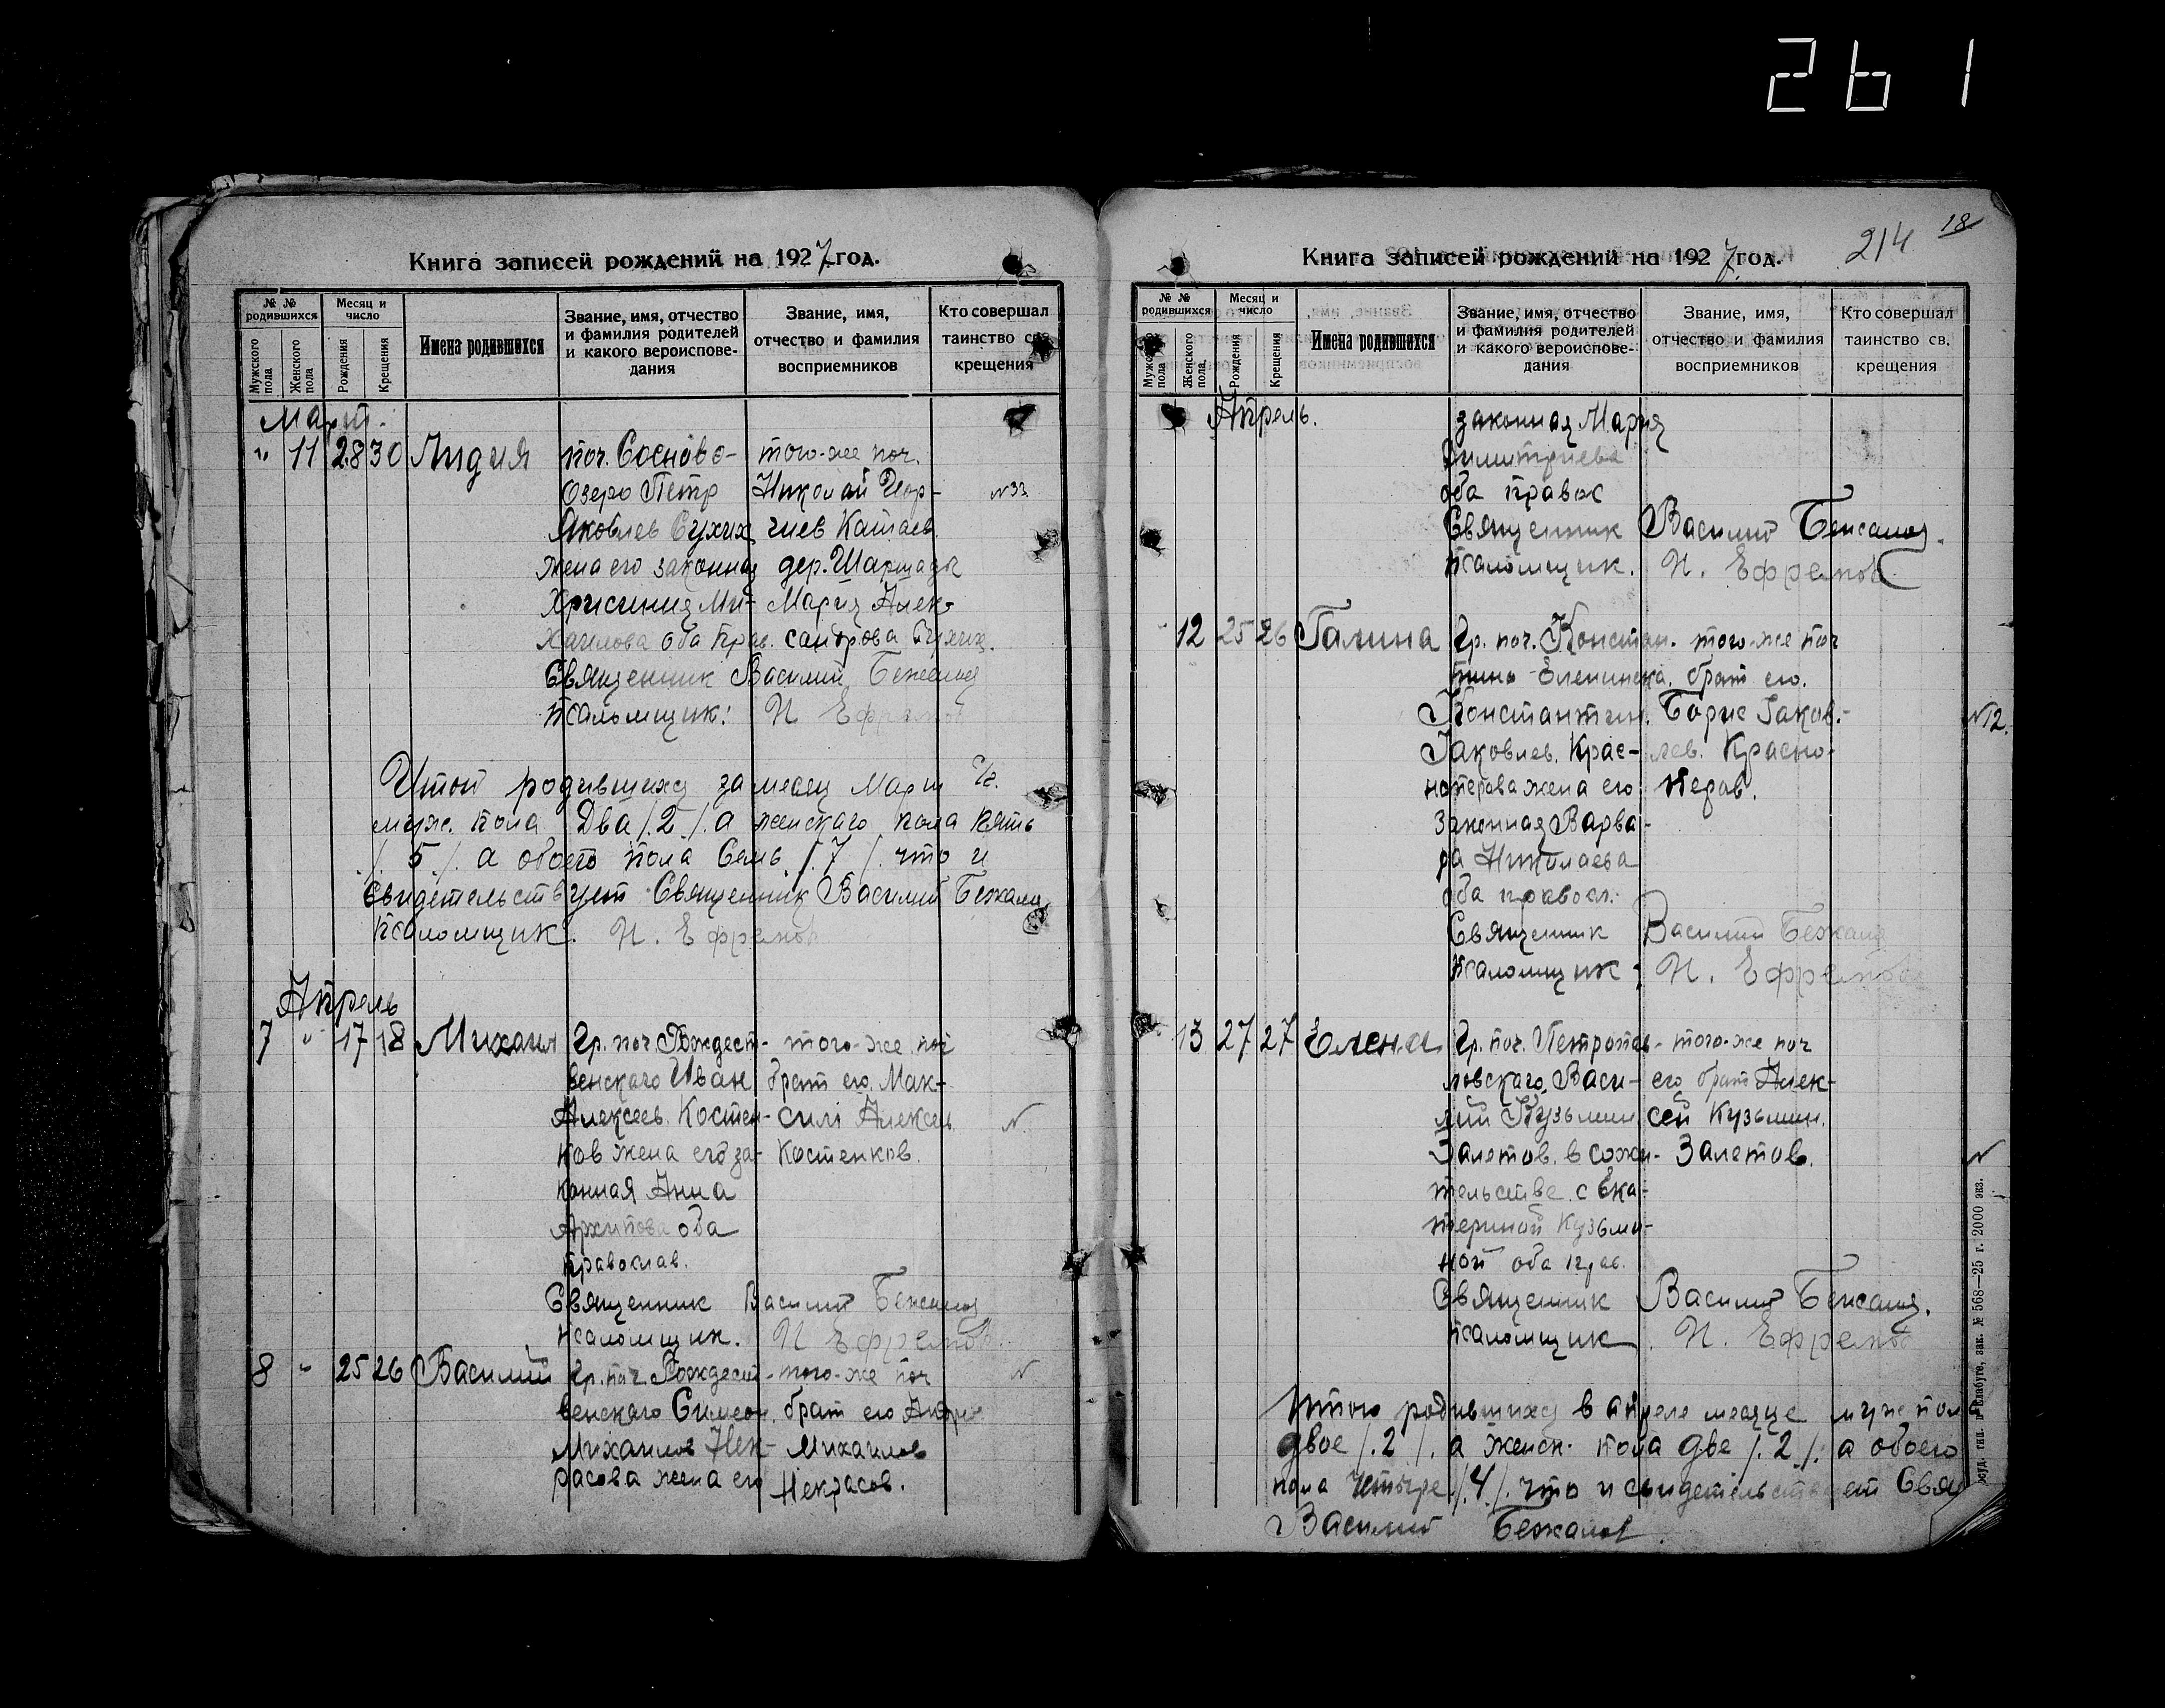 261
Книга записей рождений на 1927 год.
№ № родившихся
Мужского пола
Женского пола
Месяц и число
Рождения
Крещения
Имена родившихся
Звание, имя, отчество и фамилия родителей и какого вероисповедания
Звание, имя, отчество и фамилия восприемников
Кто совершал таинство св. крещения
Март.
" 11 28 30 Лидия поч. Сосново- того-же поч.
Озеро Петр Николай
№33
Яковлев Сухих Катаев
жена его законная дер. Шаршады
Христина Ми- Мария Алек-
хаилова оба прав. сандрова Сухих.
Священник Василий
Псаломщик: И Ефремов
Итог родившихся за месяц Март
муж. пола Два /.2./. а женского пола пять
/. 5 /. а обоего пола Семь /.7./. что и
свидетельствует Священник Василий
Псаломщик. И. Ефремов
Апрель
7 " 17 18 Михаил Гр. поч. Рождест- того-же поч
венскаго Иван брат его Мак-
Алексеев. Костен- сим Алексеев.
ков жена его за- Костенков.
конная Анна
Архипова оба
православ.
Священник Василий
Псаломщик. И Ефремов
8 " 25 26 Василий Гр. поч. Рождест- того-же поч
венскаго Симеон. брат его
Михаилов Нек- Михаилов
расова жена его Некрасов.
18
214
Книга записей рождений на 1927 год.
№ № родившихся
Мужского пола
Женского пола
Месяц и число
Рождения
Крещения
Имена родившихся
Звание, имя, отчество и фамилия родителей и какого вероисповедания
Звание, имя, отчество и фамилия восприемников
Кто совершал таинство св. крещения
Апрель.
законная Мария
Димитриева
оба правос
Священник Василий
Псаломщик. И. Ефремов
" 12 25 26 Галина Гр. поч. Констан. того-же поч
тино-Еленинска. брат его.
Константин. Борис Iаков.-
№12.
Iаковлев. Крас- лев. Красно-
ноперова жена его перов.
законная Варва-
ра Николаева
оба правосл.
Священник Василий
Псаломщик: И. Ефремов
13 27 27 Елена Гр. поч. Петропав- того-же поч
ловскаго, Васи- его брат Алек-
лий Кузьмин. сей Кузьмин.
Залетов. в сожи- Залетов.
тельстве с Ека-
териной Кузьми-
ной оба прав.
Священник Василий
Псаломщик. И. Ефремов
Итого родившихся в апреле месяце муж пола
двое /.2./. а женск. пола две /.2./. а обоего
пола четыре /.4./. что и свидетельствует Свящ
Василий
зак. № 568—25 г. 2000 экз.